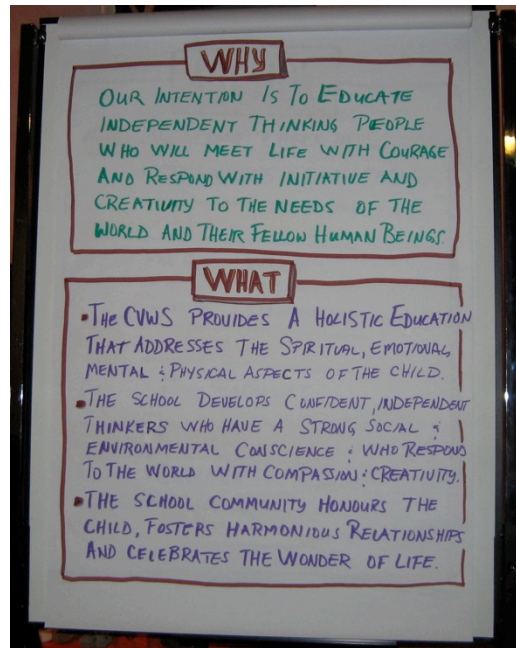 WHY
OUR INTENTION IS TO EDUCATE
INDEPENDENT THINKING PEOPLE
WHO WILL MEET LIFE WITH COURAGE
AND RESPOND WITH INITIATIVE AND
CREATIVITY TO THE NEEDS OF THE
WORLD AND THEIR FELLOW HUMAN BEINGS.
WHAT
• THE CVWS PROVIDES A HOLISTIC EDUCATION
THAT ADDRESSES THE SPIRITUAL, EMOTIONAL,
MENTAL & PHYSICAL ASPECTS OF THE CHILD.
• THE SCHOOL DEVELOPS CONFIDENT, INDEPENDENT
THINKERS WHO HAVE A STRONG SOCIAL &
ENVIRONMENTAL CONSCIENCE & WHO RESPOND
TO THE WORLD WITH COMPASSION & CREATIVITY.
• THE SCHOOL COMMUNITY HONOURS THE
CHILD, FOSTERS HARMONIOUS RELATIONSHIPS
AND CELEBRATES THE WONDER OF LIFE.